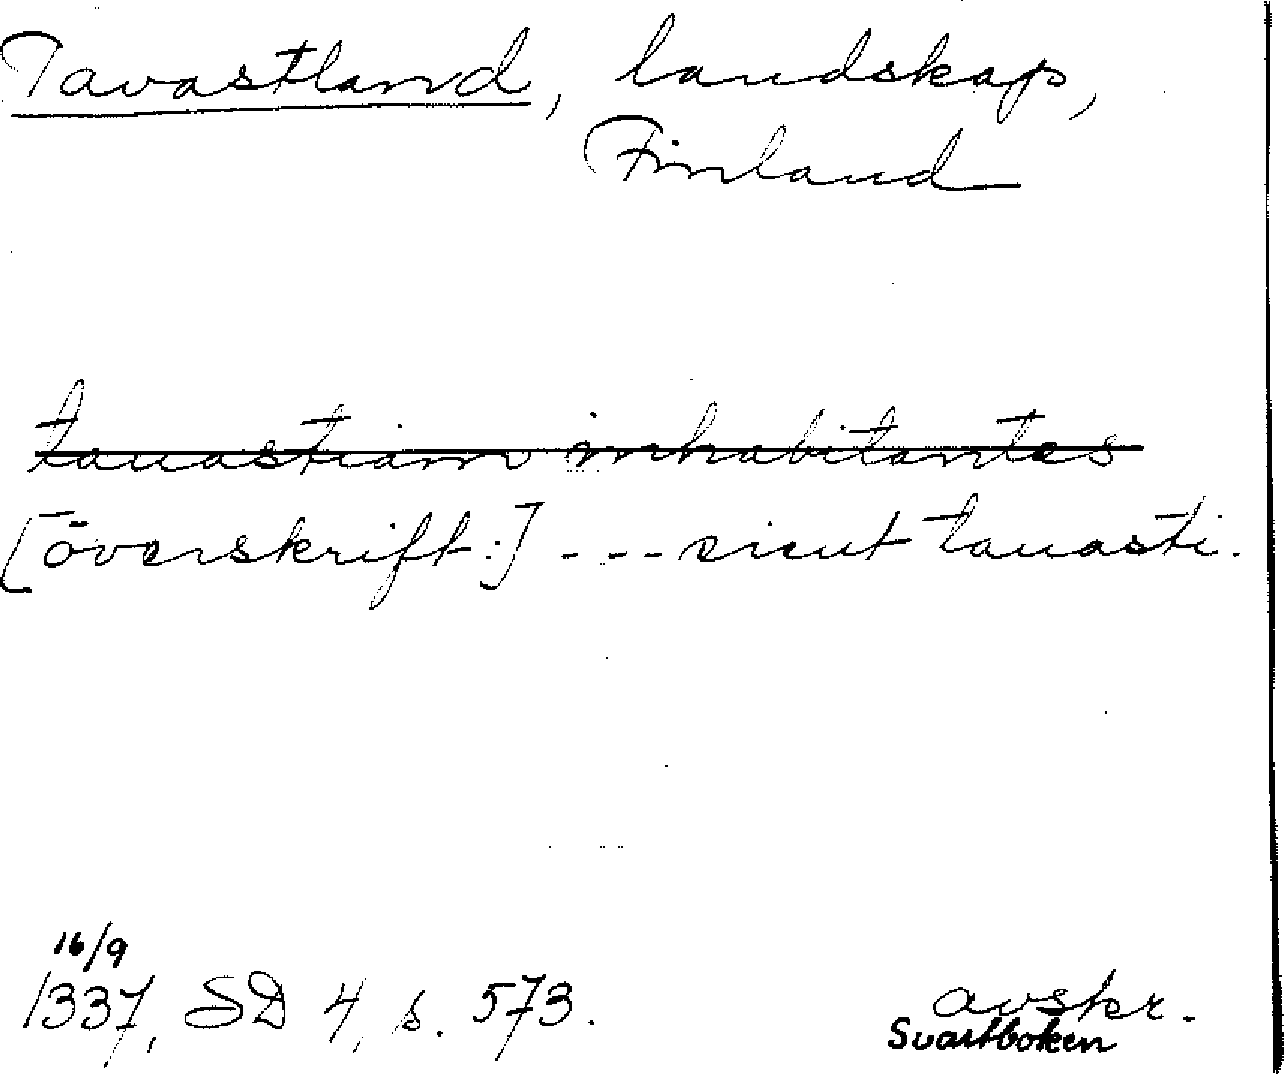 Tavastland, landskap,
Finland
tauastiam inhabitantes
[överskift:] --- sicut tauasti.
16/9
1337, SD 4, s. 573.
avskr.
Svartboken